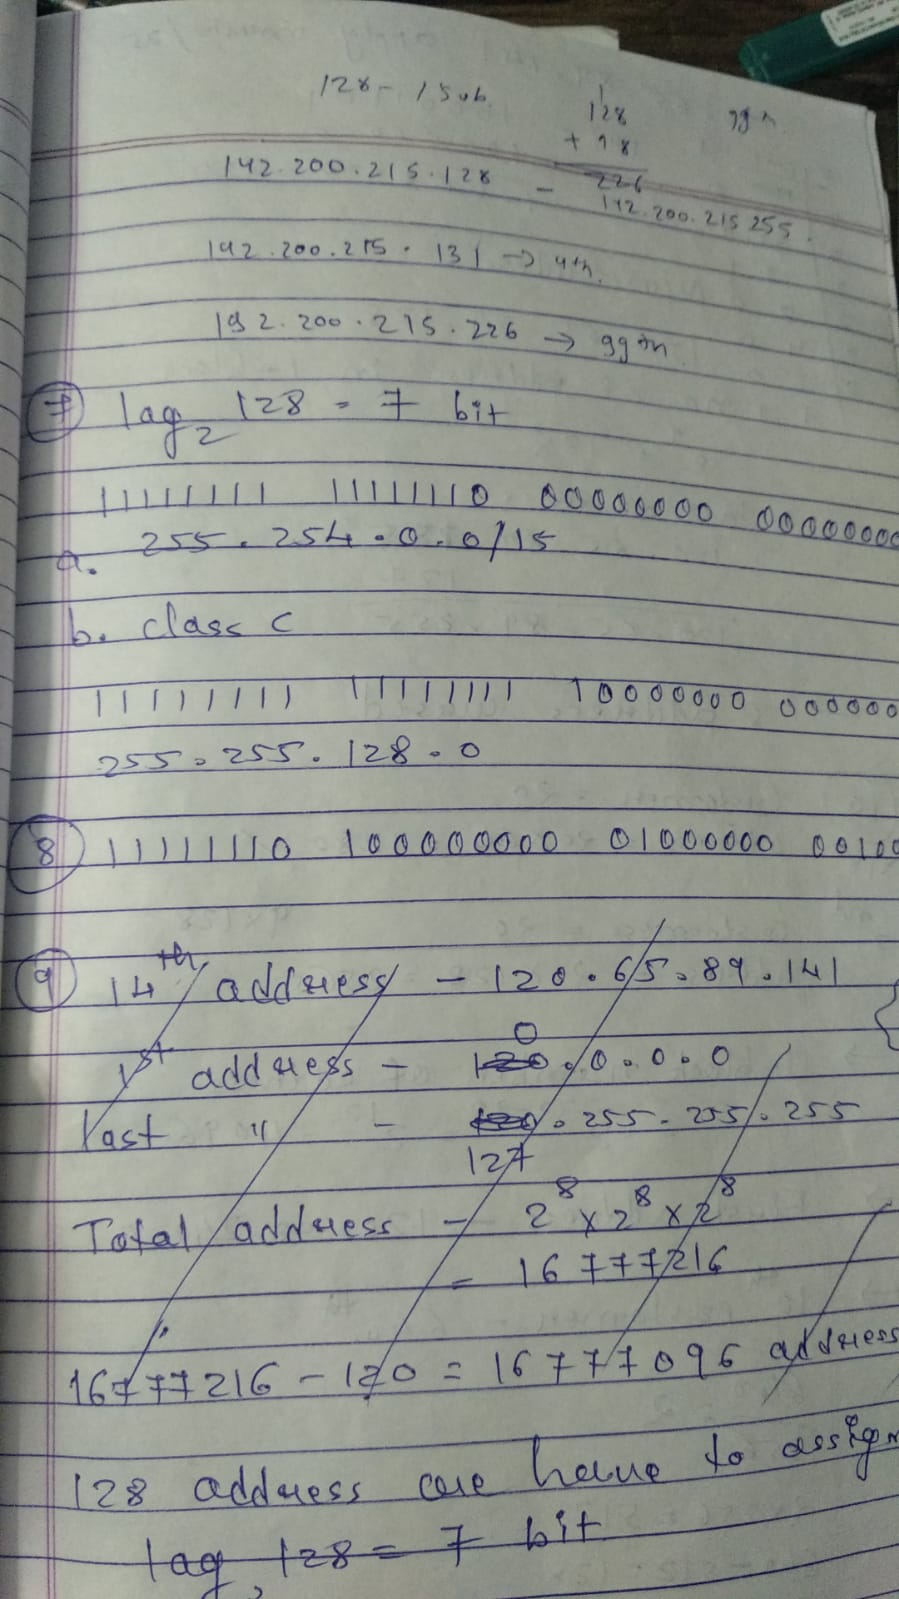 128 - 1 Sub.
128
+ 98
226
192.200.215.128 - 192.200.215.255
192.200.215.131 -> 4th.
192.200.215.226 -> 99th
7 log₂ 128 = 7 bit
11111111 11111110 00000000 00000000
a. 255.254.0.0/15
b. class C
11111111 11111111 10000000 000000
255.255.128.0
8 11111110 100000000 01000000 00100
9 14th address - 120.65.89.141
1st address - 0.0.0.0
last " - 127.255.255.255
Total address - 2⁸ x 2⁸ x 2⁸
= 16777216
16777216 - 120 = 16777096 address
128 address we have to assign
log₂ 128 = 7 bit